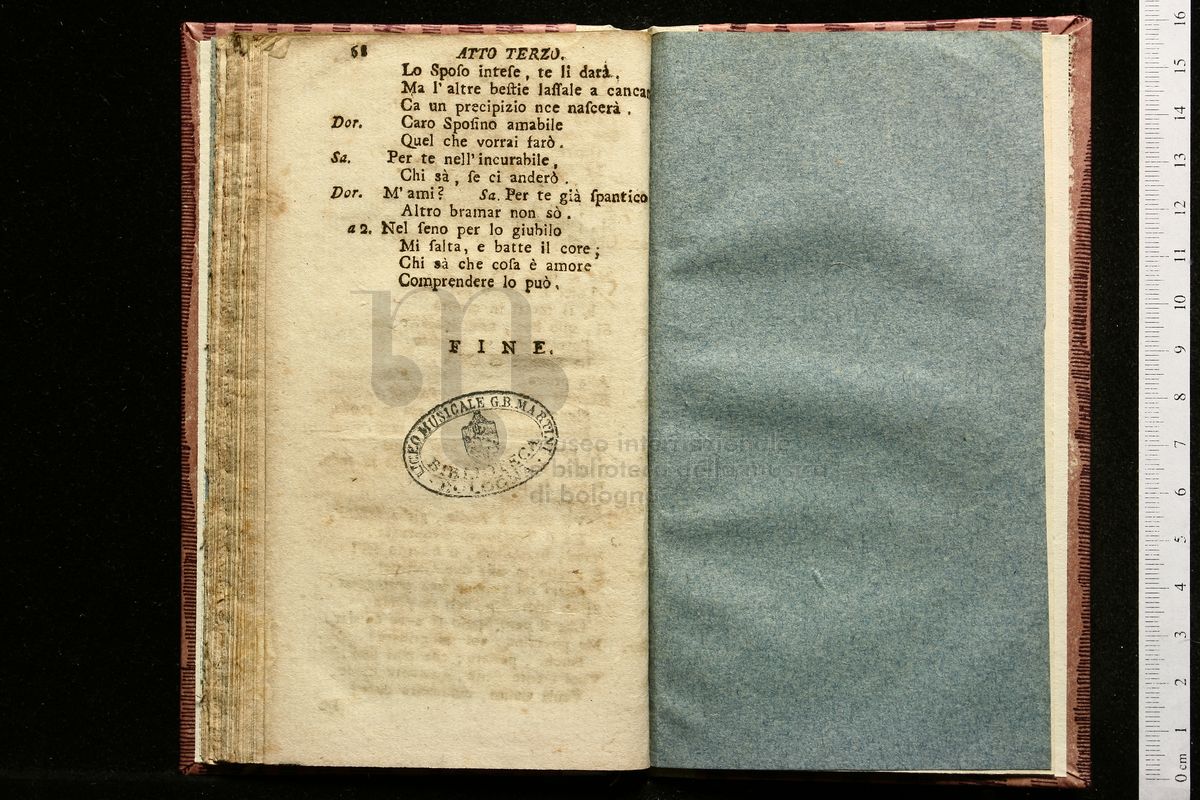 68 ATTO TERZO.
Lo Spoſo inteſe, te li darà,
Ma l'altre beſtie laſſale a cancar
Ca un precipizio nce naſcerà.
Dor. Caro Spoſino amabile
Quel che vorrai farò.
Sa. Per te nell'incurabile,
Chi sà, ſe ci anderò.
Dor. M'ami? Sa. Per te già ſpantico
Altro bramar non sò.
a 2. Nel ſeno per lo giubilo
Mi ſalta, e batte il core;
Chi sà che coſa è amore
Comprendere lo può.
FINE.
LICEO MUSICALE G.B. MARTINI
BIBLIOTECA
BOLOGNA
museo internazionale
e biblioteca della musica
di bologna
16
15
14
13
12
11
10
9
8
7
6
5
4
3
2
1
0 cm